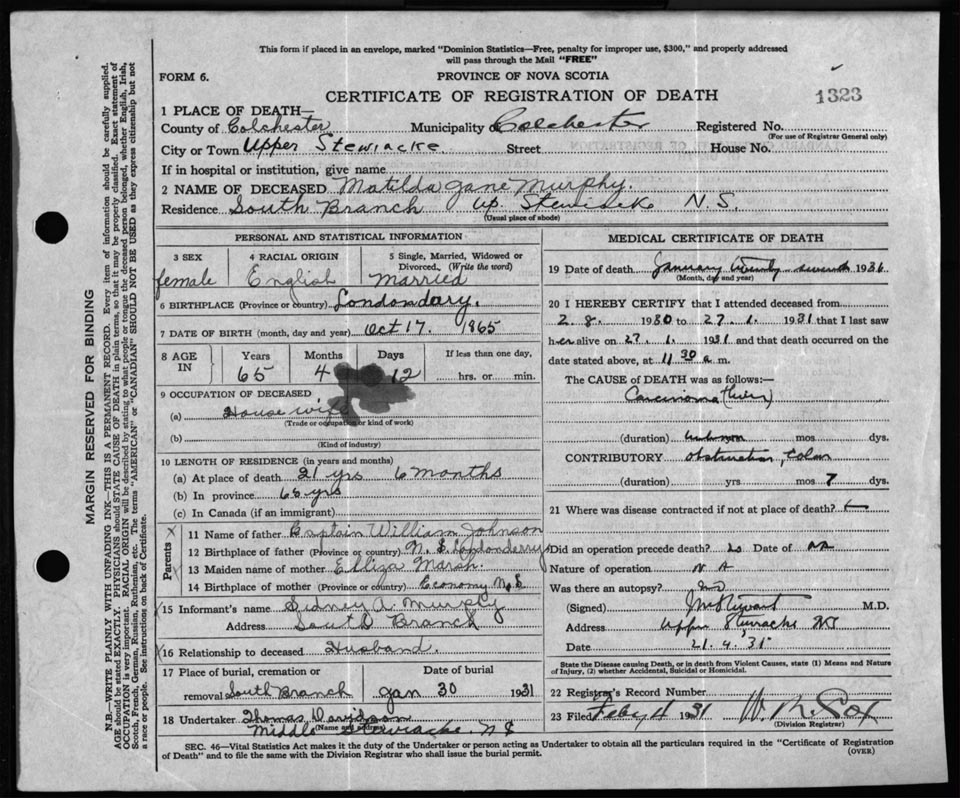 This form if placed in an envelope, marked "Dominion Statistics—Free, penalty for improper use, $300," and properly addressed
will pass through the Mail "FREE"
FORM 6.
PROVINCE OF NOVA SCOTIA
CERTIFICATE OF REGISTRATION OF DEATH
1323
1 PLACE OF DEATH—
County of Colchester Municipality Colchester Registered No.
(For use of Registrar General only)
City or Town Upper Stewiacke Street House No.
If in hospital or institution, give name
2 NAME OF DECEASED Matilda Jane Murphy.
Residence South Branch Up. Stewiacke N.S.
(Usual place of abode)
PERSONAL AND STATISTICAL INFORMATION
3 SEX 4 RACIAL ORIGIN 5 Single, Married, Widowed or
Divorced. (Write the word)
female English Married
6 BIRTHPLACE (Province or country) Londondary.
7 DATE OF BIRTH (month, day and year) Oct 17. 1865
8 AGE IN Years Months Days If less than one day,
65 4 12 hrs. or min.
9 OCCUPATION OF DECEASED
(a) House wife
(Trade or occupation or kind of work)
(b)
(Kind of industry)
10 LENGTH OF RESIDENCE (in years and months)
(a) At place of death 21 yrs 6 months
(b) In province 65 yrs
(c) In Canada (if an immigrant)
Parents
11 Name of father Captain William Johnson
12 Birthplace of father (Province or country) N. S. Londonderry
13 Maiden name of mother Elliza Marsh.
14 Birthplace of mother (Province or country) Economy N.S
15 Informant's name Sidney A. Murphy
Address South Branch
16 Relationship to deceased Husband.
17 Place of burial, cremation or Date of burial
removal South Branch Jan 30 1931
18 Undertaker Thomas Davidson
(Name and address)
Middle Stewiacke. N S
MEDICAL CERTIFICATE OF DEATH
19 Date of death January twenty seventh 1931
(Month, day and year)
20 I HEREBY CERTIFY that I attended deceased from
2. 8. 1930 to 27. 1. 1931 that I last saw
her alive on 27. 1. 1931 and that death occurred on the
date stated above, at 11 30 a.m.
The CAUSE of DEATH was as follows:—
Carcinoma (liver)
(duration) unknown mos dys.
CONTRIBUTORY obstruction, Colon
(duration) yrs mos 7 dys.
21 Where was disease contracted if not at place of death?
Did an operation precede death? Date of
Nature of operation N A
Was there an autopsy? no
(Signed) M.D.
Address Upper Stewiacke NS
Date 21. 4. '31
State the Disease causing Death, or in death from Violent Causes, state (1) Means and Nature
of Injury, (2) whether Accidental, Suicidal or Homicidal.
22 Registrar's Record Number
23 Filed Feby 4 1931
(Division Registrar)
SEC. 46—Vital Statistics Act makes it the duty of the Undertaker or person acting as Undertaker to obtain all the particulars required in the "Certificate of Registration
of Death" and to file the same with the Division Registrar who shall issue the burial permit.
(OVER)
MARGIN RESERVED FOR BINDING
N.B.—WRITE PLAINLY WITH UNFADING INK—THIS IS A PERMANENT RECORD. Every item of information should be carefully supplied.
AGE should be stated EXACTLY. PHYSICIANS should STATE CAUSE OF DEATH in plain terms, so that it may be properly classified. Exact statement of
OCCUPATION is very important. RACIAL ORIGIN will be described by stating to what people or tongue the deceased person belonged, whether English, Irish,
Scotch, French, German, Russian, Ruthenian, etc. The terms "AMERICAN" or "CANADIAN" SHOULD NOT BE USED as they express citizenship but not
a race or people. See instructions on back of Certificate.